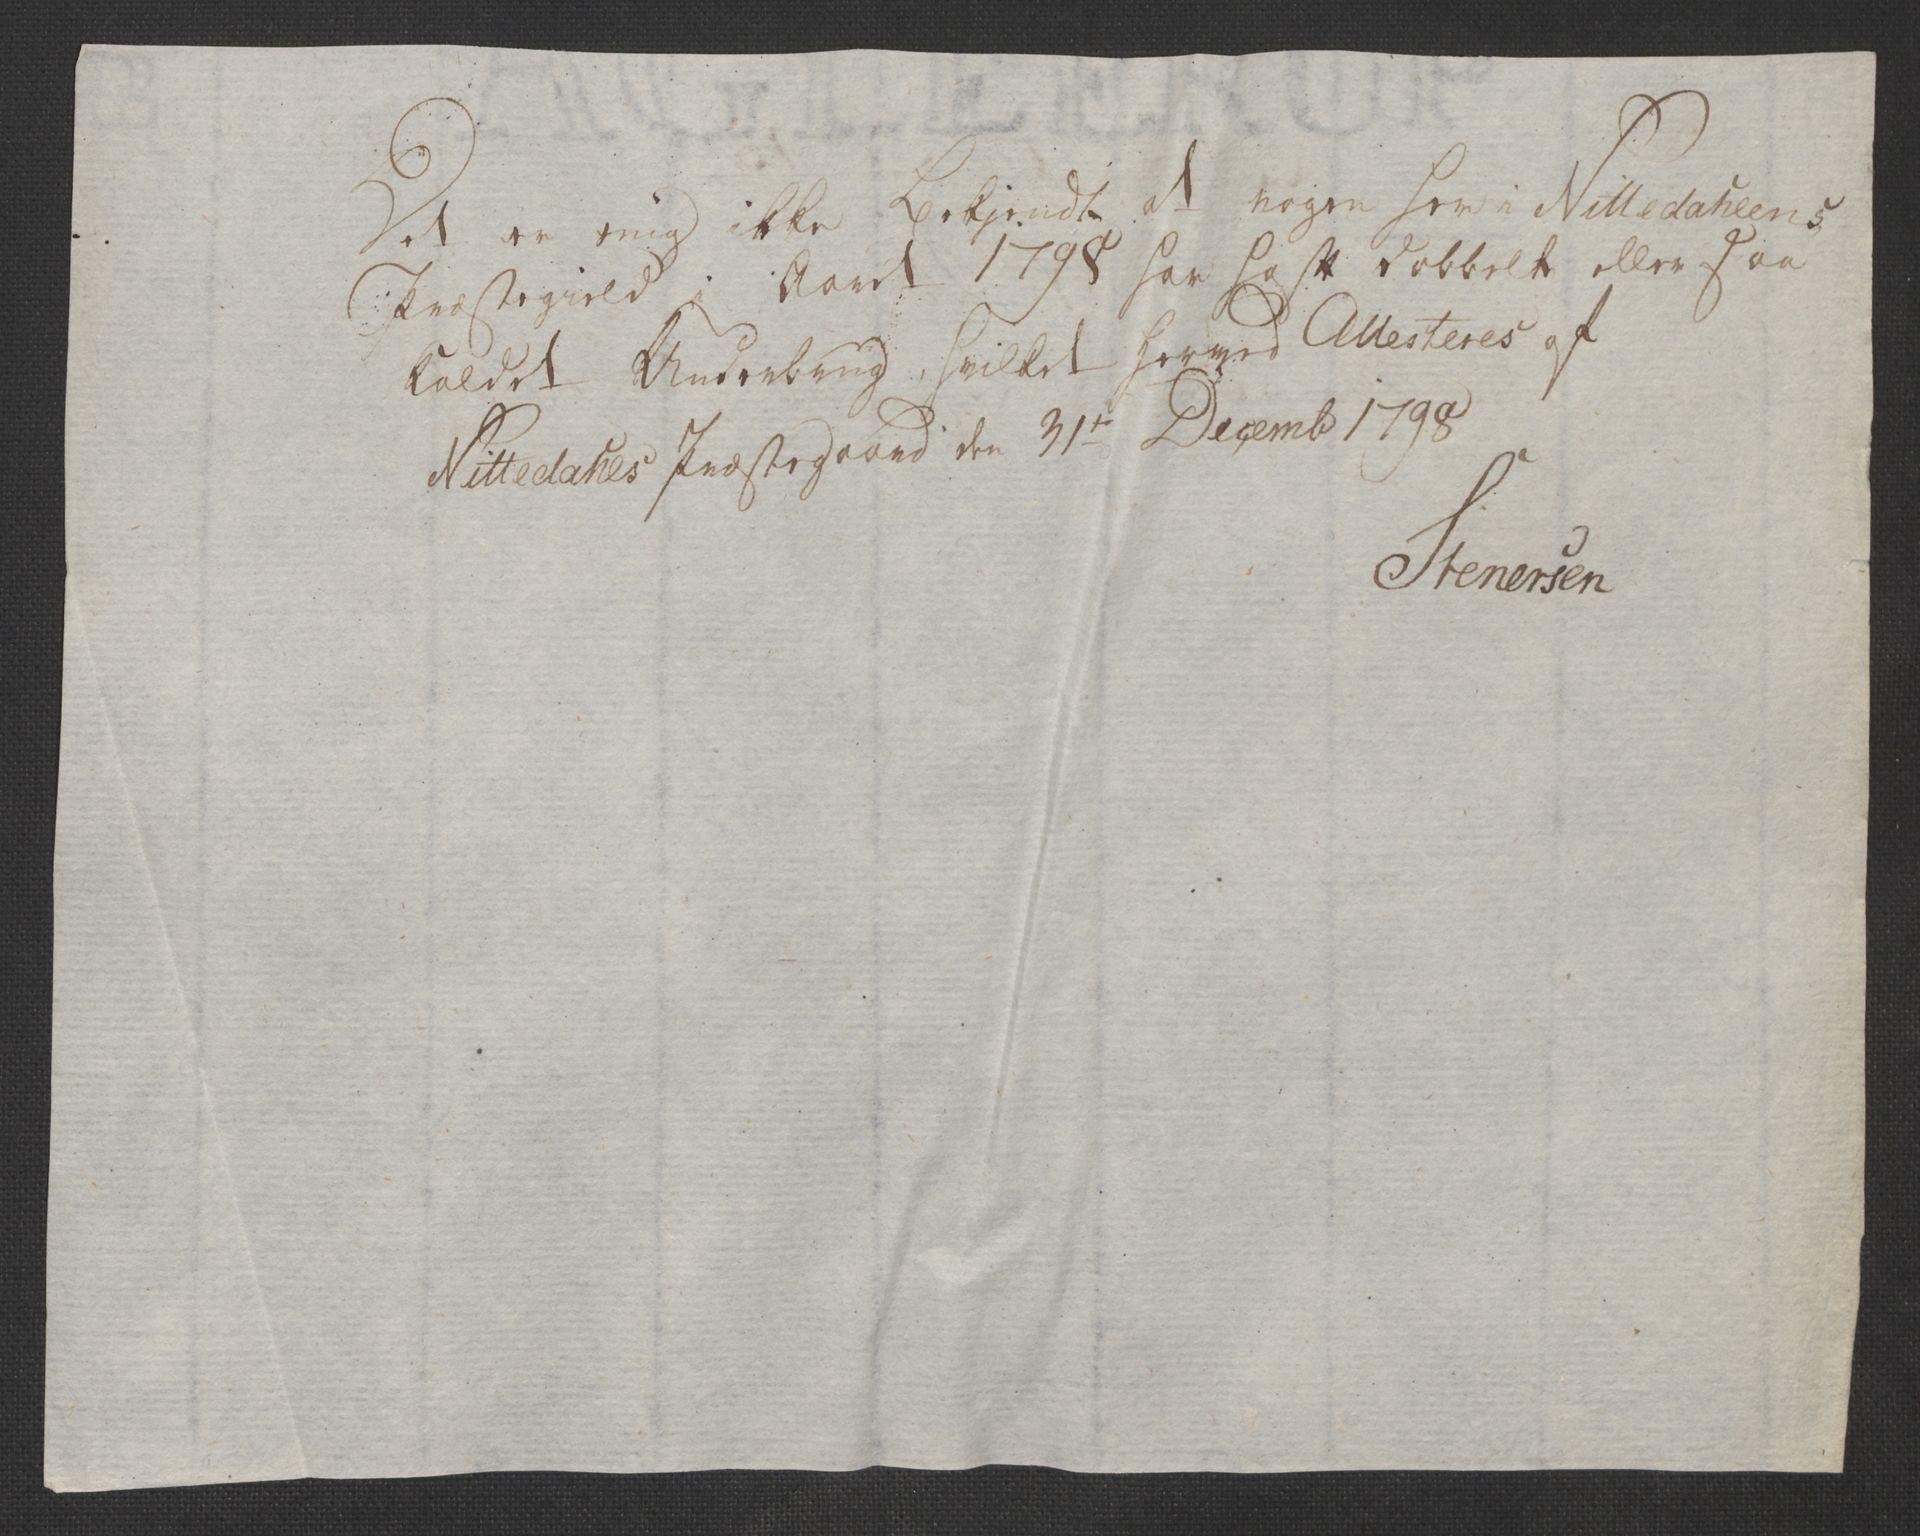 Det er mig ikke Bekjendt at nogen her i Nittedahlens
Præstegield i Aaret 1798 har havt dobbelt eller saa
kaldet Underbrug, hvilket herved Attesteres af
Nittedahls Præstegaard den 31te Decemb 1798
Stenersen